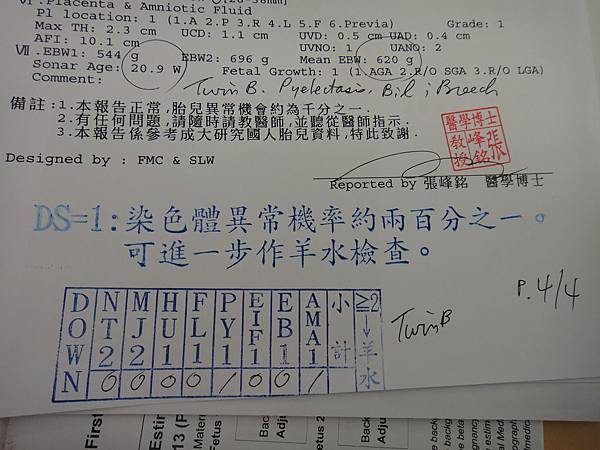 Ⅵ.Placenta & Amniotic Fluid
Pl location: 1 (1.A 2.P 3.R 4.L 5.F 6.Previa) Grade: 1
Max TH: 2.3 cm UCD: 1.1 cm UVD: 0.5 cm UAD: 0.4 cm
AFI: 10.1 cm UVNO: 1 UANO: 2
Ⅶ.EBW1: 544 g EBW2: 696 g Mean EBW: 620 g
Sonar Age: 20.9 W Fetal Growth: 1 (1.AGA 2.R/O SGA 3.R/O LGA)
Comment: Twin B. Pyelectasis, Bil ; Breech
備註:1.本報告正常,胎兒異常機會約為千分之一.
2.有任何問題,請隨時請教醫師,並聽從醫師指示.
3.本報告係參考成大研究國人胎兒資料,特此致謝.
醫學博士
張峰銘
教授
Designed by : FMC & SLW
Reported by 張峰銘 醫學博士
DS=1:染色體異常機率約兩百分之一。
可進一步作羊水檢查。
P.4/4
DOWN NT2 MJ2 HU1 FL1 PY1 EIF1 EB1 AMA1 小計 ≧2→羊水
0 0 0 0 1 0 0 1
Twin B
First
Estim
13 (F
Matern
Fetus
Back
Adju
Fetus 2
Back
Adju